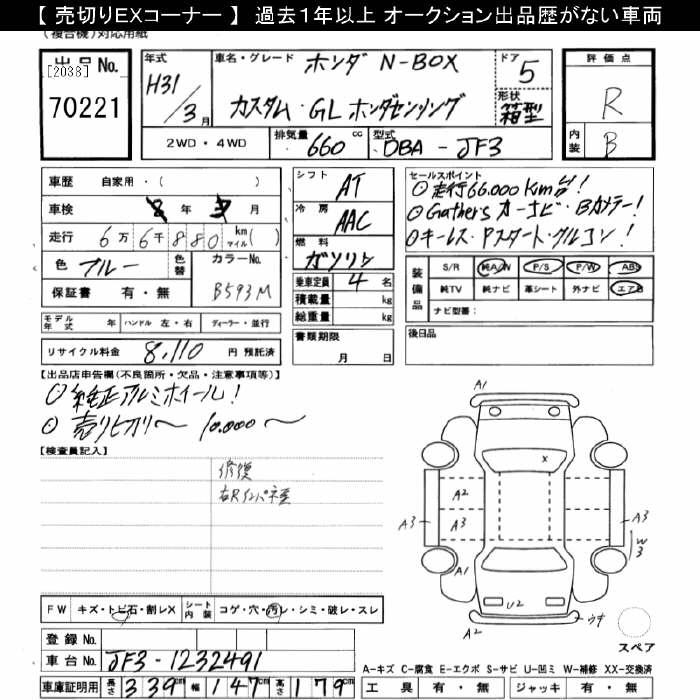 【 売切りEXコーナー 】 過去1年以上 オークション出品歴がない車両
(複合機)対応用紙
出品No.
[2038]
70221
年式
H31/3月
車名・グレード
ホンダ N-BOX
カスタム・GL ホンダセンシング
ドア
5
形状
箱型
評価点
R
内装
B
2WD・4WD
排気量
660 cc
型式
DBA - JF3
車歴 自家用・( )
車検 年 月
走行 6万6千880 km マイル( )
色 ブルー
色替
カラーNo.
B593M
保証書 有・無
シフト
AT
冷房
AAC
燃料
ガソリン
乗車定員 4 名
積載量 kg
総重量 kg
書類期限
月 日
セールスポイント
①走行66,000km台!
①Gathersカーナビ・Bカメラー!
①キーレス・Pスタート・クルコン!
装備品
S/R 純A/W P/S P/W ABS
純TV 純ナビ 革シート 外ナビ エアB
ナビ型番:
後日品
モデル年式 年 ハンドル 左・右 ディーラー・並行
リサイクル料金 8,110 円 預託済
【出品店申告欄(不良箇所・欠品・注意事項等)】
①純正アルミホイール!
①売り切り〜 10,000〜
【検査員記入】
修復
右Rインパネ歪
FW キズ・トビ石・割レX シート内装 コゲ・穴・汚レ・シミ・破レ・スレ
登録No.
車台No. JF3-1232491
車庫証明用 長さ 339cm 幅 147cm 高さ 179cm
A1
X
A2
A3
A3
A3
W3
U2
A2
ウキ
スペア
A-キズ C-腐食 E-エクボ S-サビ U-凹ミ W-補修 XX-交換済
工具 有・無 ジャッキ 有・無